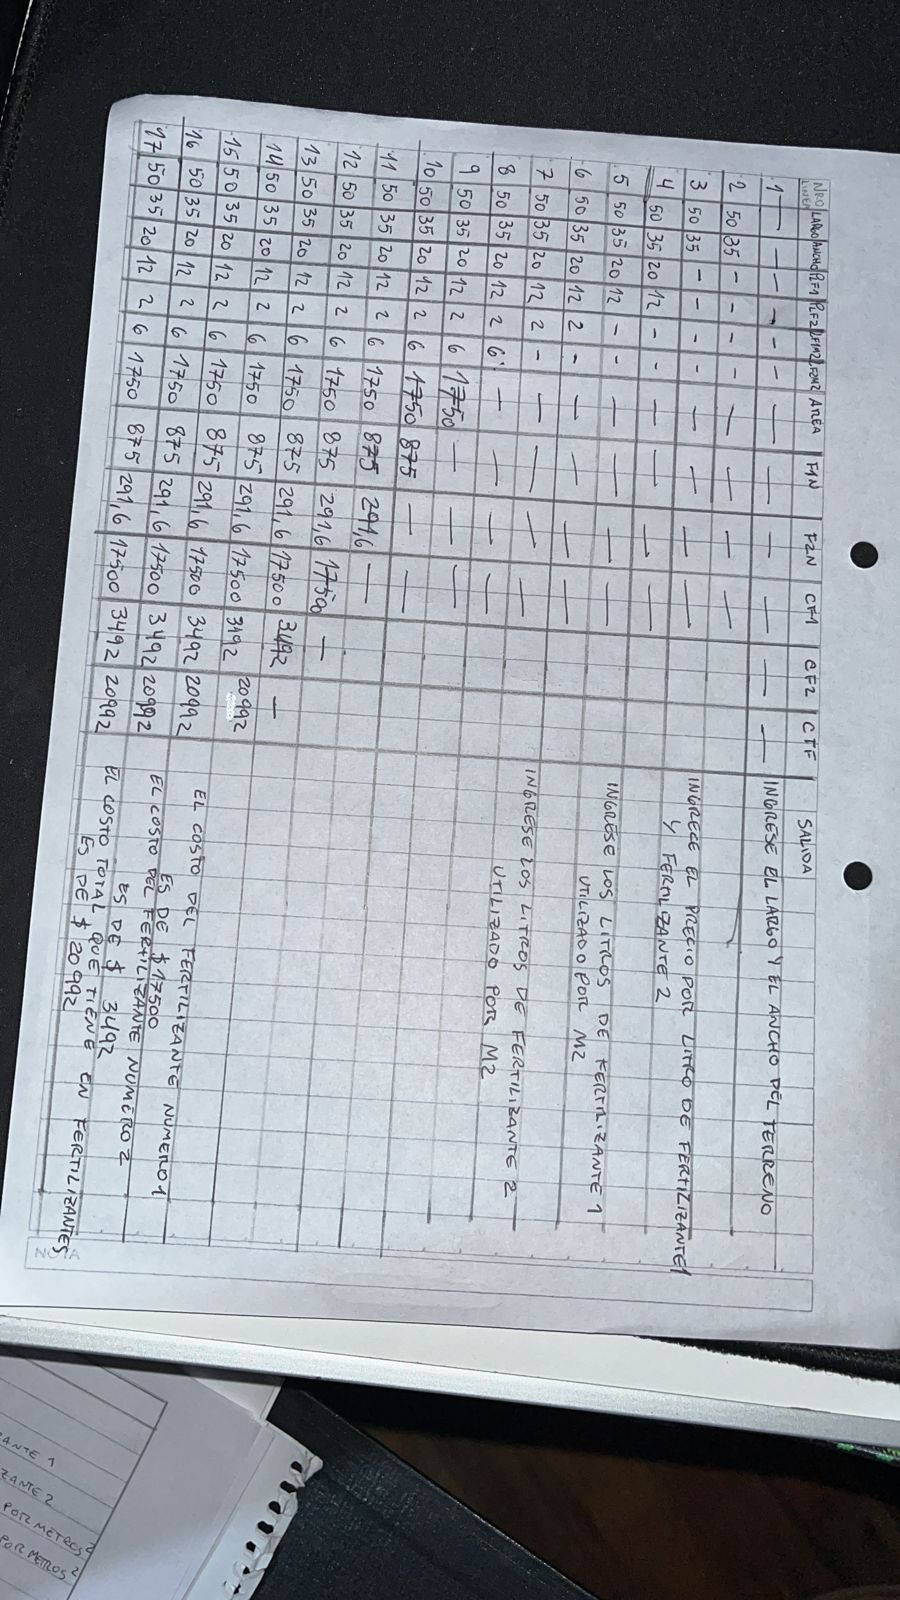 NRO LINEA LARGO ANCHO PLF1 PLF2 LF1M2 LF2M2 AREA F1N F2N CF1 CF2 CTF SALIDA
1 — — — - - - — — — — — — INGRESE EL LARGO Y EL ANCHO DEL TERRENO
2 50 35 - - - - — — — —
3 50 35 - - - - — — — — INGRECE EL PRECIO POR LITRO DE FERTILIZANTE 1
Y FERTILIZANTE 2
4 50 35 20 12 - - — — — —
5 50 35 20 12 - - — — — — INGRESE LOS LITROS DE FERTILIZANTE 1
UTILIZAO POR M2
6 50 35 20 12 2 - — — — —
7 50 35 20 12 2 - — — — — INGRESE LOS LITROS DE FERTILIZANTE 2
UTILIZADO POR M2
8 50 35 20 12 2 6 — — — —
9 50 35 20 12 2 6 1750 — — —
10 50 35 20 12 2 6 1750 875 — —
11 50 35 20 12 2 6 1750 875 291,6 —
12 50 35 20 12 2 6 1750 875 291,6 17500 —
13 50 35 20 12 2 6 1750 875 291,6 17500 3492 —
14 50 35 20 12 2 6 1750 875 291,6 17500 3492 20992
15 50 35 20 12 2 6 1750 875 291,6 17500 3492 20992 EL COSTO DEL FERTILIZANTE NUMERO 1
ES DE $17500
16 50 35 20 12 2 6 1750 875 291,6 17500 3492 20992 EL COSTO DEL FERTILIZANTE NUMERO 2
ES DE $ 3492
17 50 35 20 12 2 6 1750 875 291,6 17500 3492 20992 EL COSTO TOTAL QUE TIENE EN FERTILIZANTES
ES DE $ 20992
NOTA
ANTE 1
ZANTE 2
POR METROS 2
POR METROS 2